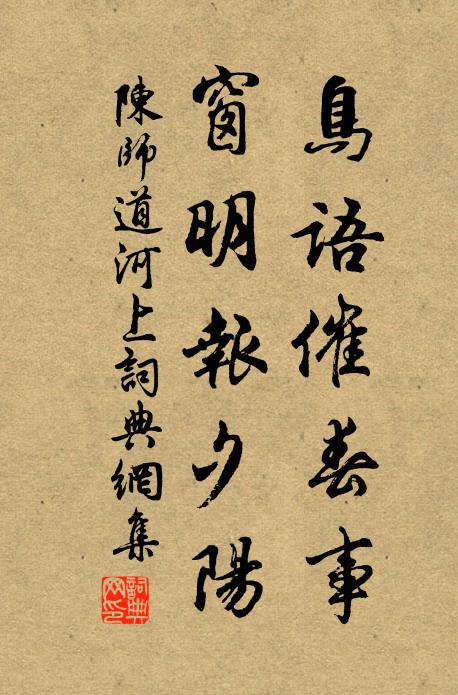 鳥語催春事
窗明報夕陽
陳師道河上詞典網集
詞典
网印